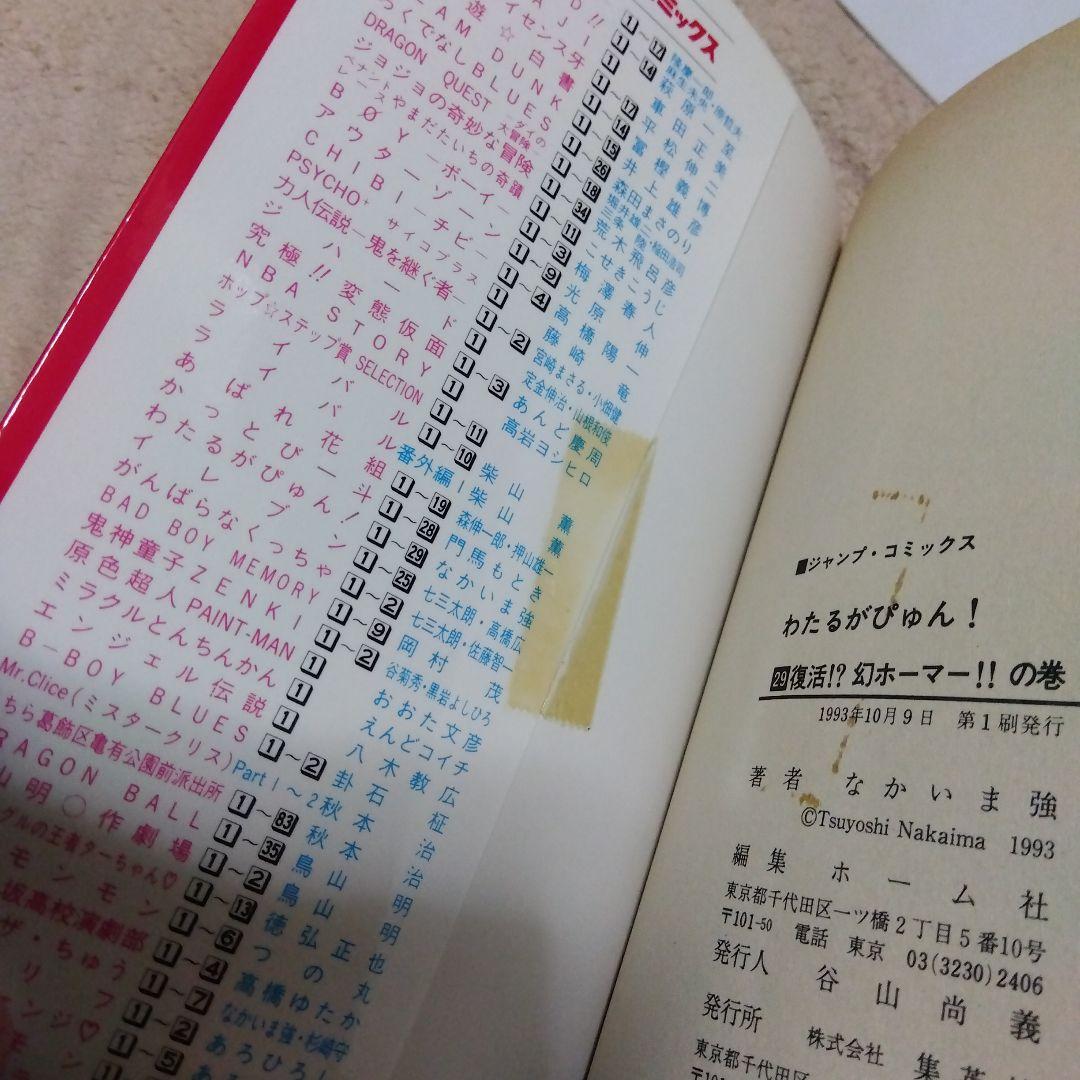 ミックス
D!! 1~17
遊☆白書 1~14 冨樫義博
SLAM DUNK 1~15 井上雄彦
ろくでなしBLUES 1~26 森田まさのり
DRAGON QUEST ダイの大冒険 1~18
ジョジョの奇妙な冒険 1~34 荒木飛呂彦
ペナントレース やまだたいちの奇蹟 1~11 こせきこうじ
BØY―ボーイ― 1~3 梅澤春人
アウターゾーン 1~9 光原伸
CHIBI―チビ― 1~4 高橋陽一
PSYCHO+ サイコプラス 1 藤崎竜
力人伝説―鬼を継ぐ者― 1~2 宮崎まさる・小畑健
ジハード 1 定金伸治・山根和俊
究極!!変態仮面 1~3 あんど慶周
NBA STORY 1 高岩ヨシヒロ
ホップ☆ステップ賞SELECTION 1~11
ライバル 1~10 柴山薫
ライバル 番外編1 柴山薫
あばれ花組 1~19 森伸一郎・押山雄一
かっとび一斗! 1~28 門馬もとき
わたるがぴゅん! 1~29 なかいま強
イレブン 1~25 七三太朗・高橋広
がんばらなくっちゃ 1~2 七三太朗・佐藤智一
BAD BOY MEMORY 1~9 岡村茂
鬼神童子ZENKI 1~2 谷菊秀・黒岩よしひろ
原色超人PAINT-MAN 1 おおた文彦
ミラクルとんちんかん 1 えんどコイチ
エンジェル伝説 1 八木教広
B-BOY BLUES 1~2 卦石柾
Mr.Clice(ミスタークリス) Part1~2 秋本治
ちら葛飾区亀有公園前派出所 1~83 秋本治
RAGON BALL 1~35 鳥山明
山明○作劇場 1~2 鳥山明
グルの王者ターちゃん♡ 1~13 徳弘正也
モンモン 1~6 つの丸
坂高校演劇部 1~4 高橋ゆたか
ザ・ちゅう 1~7 なかいま強・杉崎守
リフ 1~2 あろひろし
■ジャンプ・コミックス
わたるがぴゅん!
29復活!?幻ホーマー!!の巻
1993年10月9日 第1刷発行
著者 なかいま強
©Tsuyoshi Nakaima 1993
編集 ホーム社
東京都千代田区一ツ橋2丁目5番10号
〒101-50 電話 東京 03(3230)2406
発行人 谷山尚義
発行所 株式会社 集英
東京都千代田区一ツ橋
〒101-